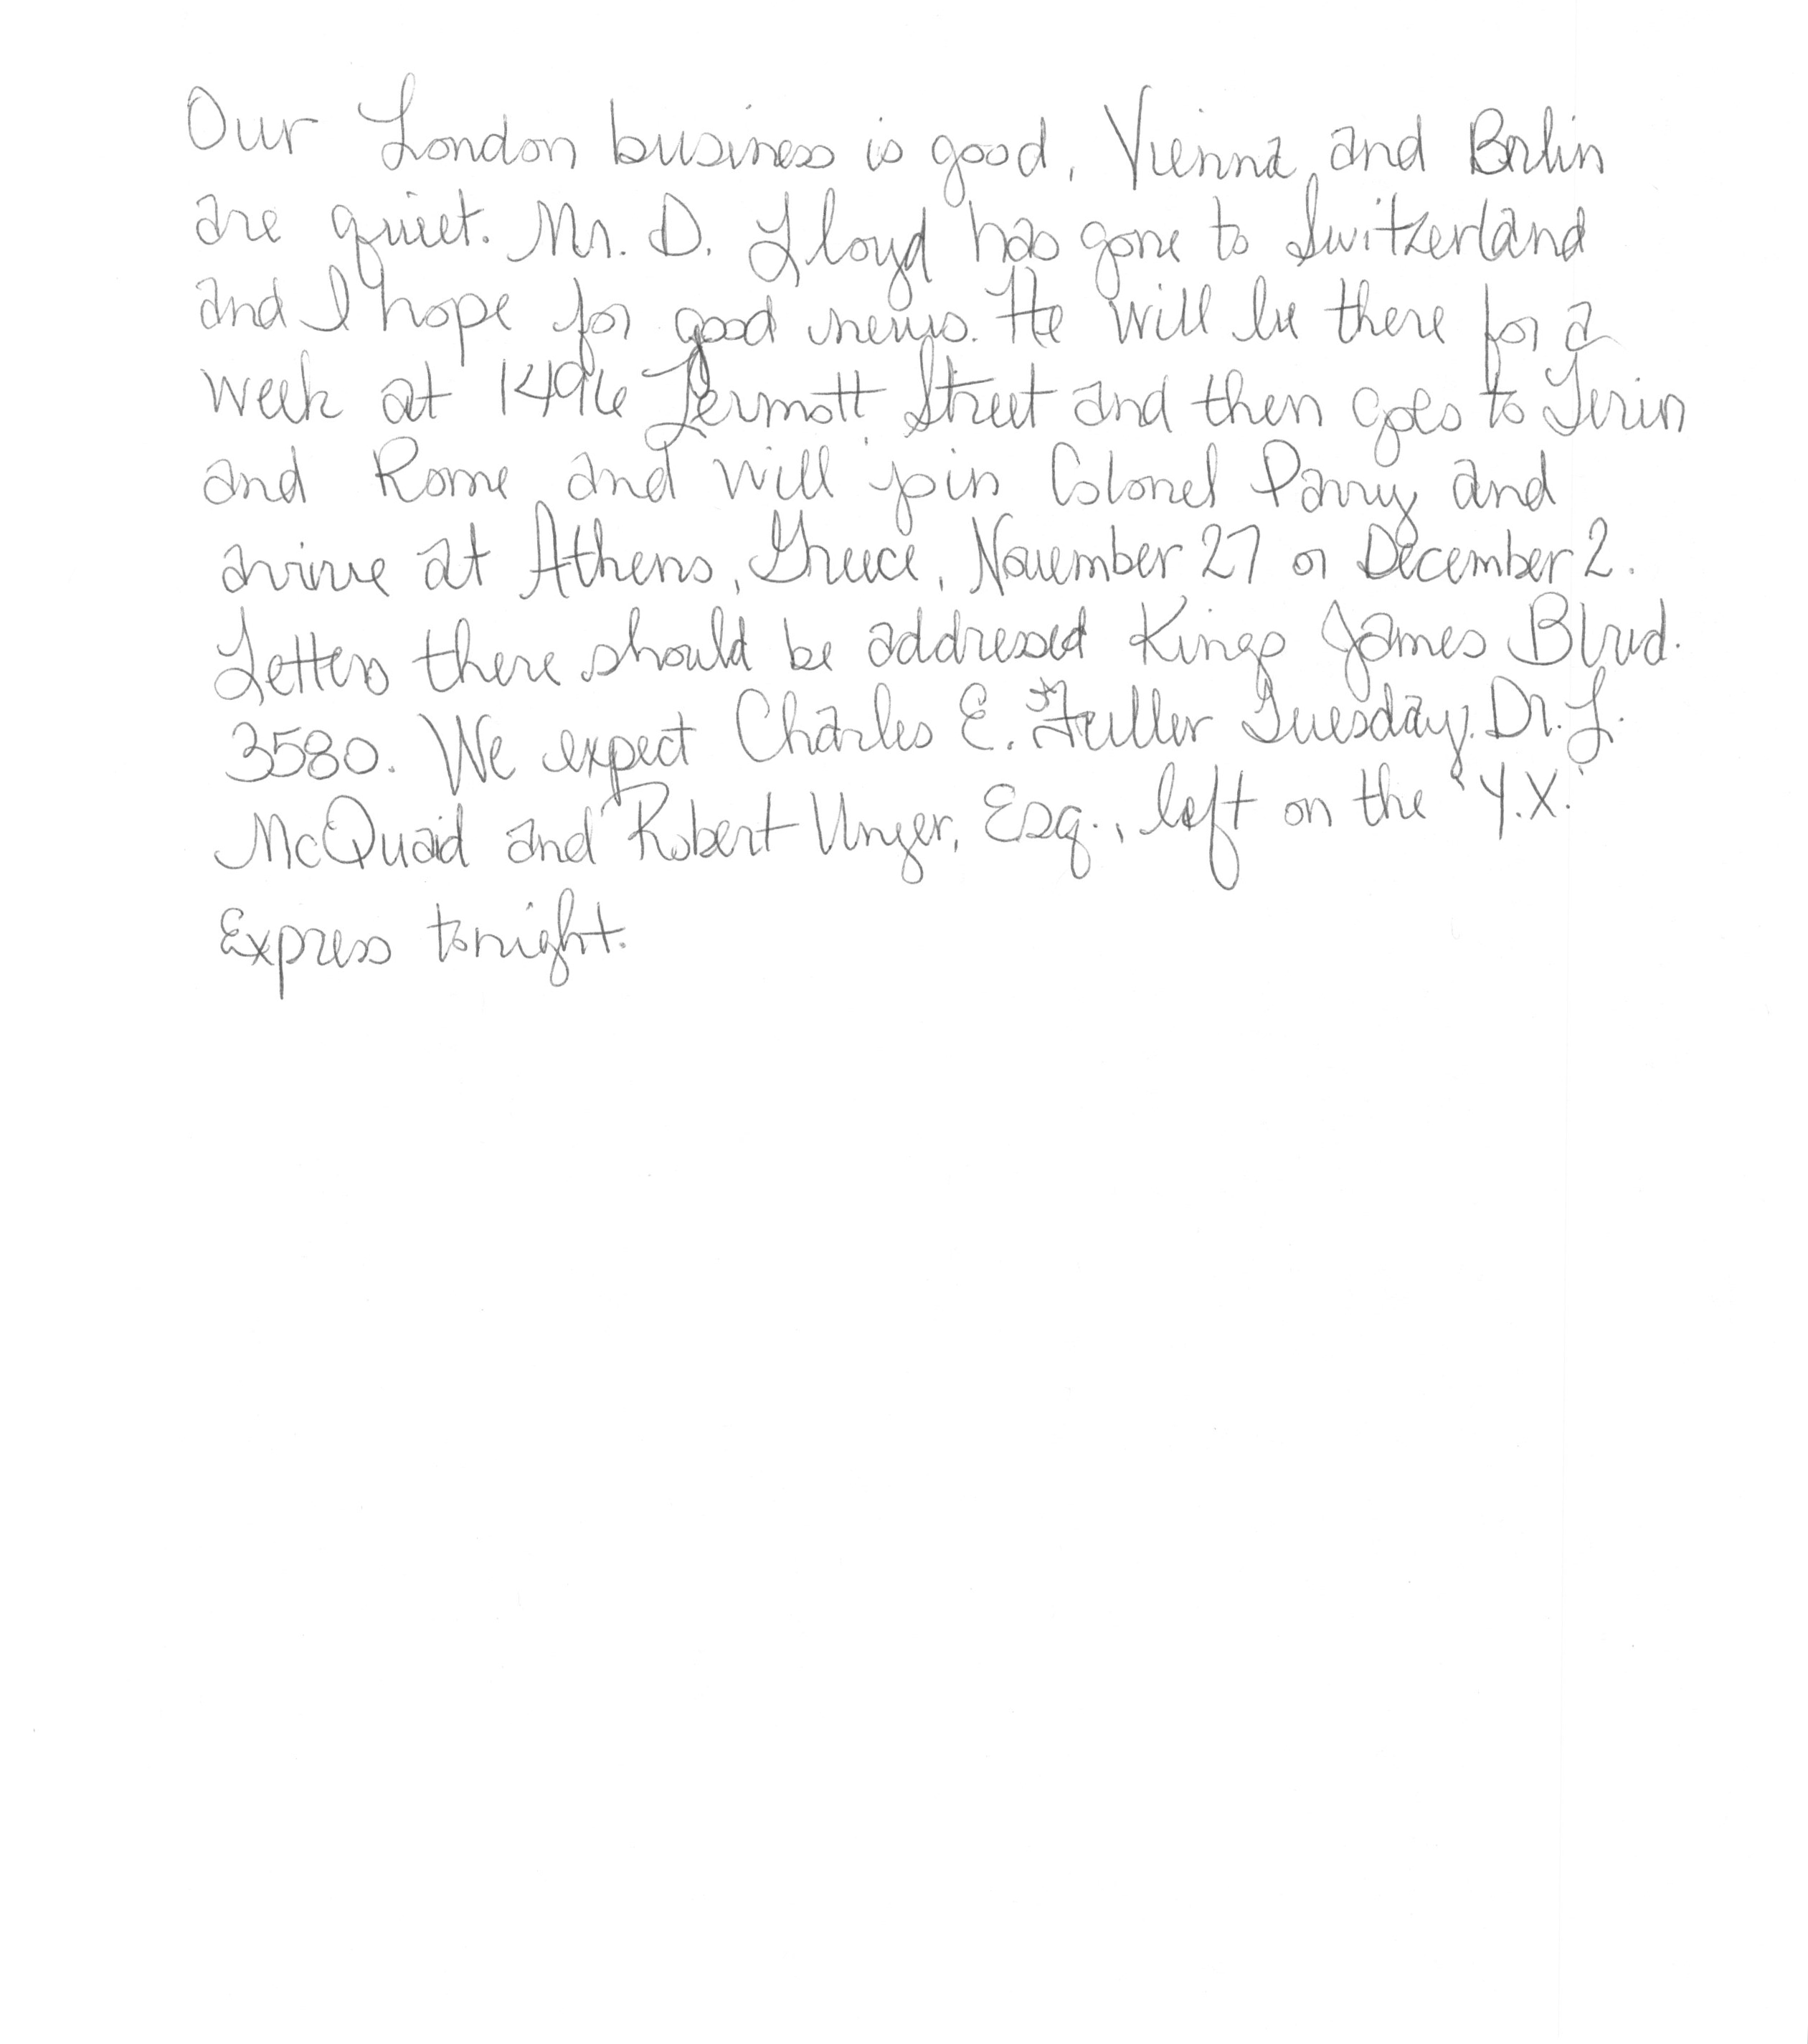 Our London business is good, Vienna and Berlin
are quiet. Mr. D. Lloyd has gone to Switzerland
and I hope for good news. He will be there for a
week at 1496 Zermott Street and then goes to Turin
and Rome and will join Colonel Parry and
arrive at Athens, Greece, November 27 or December 2.
Letters there should be addressed Kings James Blvd.
3580. We expect Charles E. Fuller Tuesday. Dr. L.
McQuaid and Robert Unger, Esq., left on the "Y.X."
Express tonight.